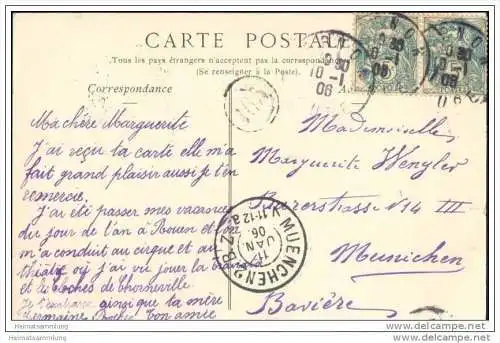 CARTE POSTALE
Tous les pays étrangers n'acceptent pas la correspondance
(Se renseigner à la Poste.)
Correspondance
Ma chère Marguerite
J'ai reçu la carte elle m'a
fait grand plaisir aussi je t'en
remercie.
J'ai été passer mes vacances
du jour de l'an à Rouen et on
m'a conduit au cirque et au
théâtre où j'ai vu jouer la
et les cloches de Corneville.
Je t'embrasse ainsi que ta mère
Germaine ton amie
Mademoiselle
Marguerite Wengler
N 14 III
Munichen
Bavière
MUENCHEN
11
JAN
06
V.11-12
Heimatsammlung
Heimatsammlung
http://www.delcampe.net